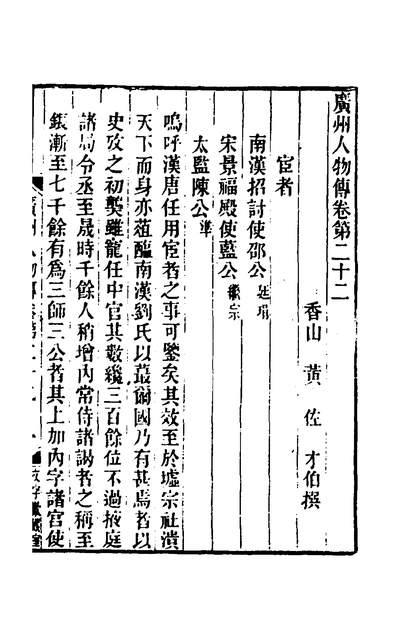 廣州人物傳卷第二十二
香山 黃 佐 才伯撰
宦者
南漢招討使邵公廷琄
宋景福殿使藍公繼宗
太監陳公準
嗚呼漢唐任用宦者之事可鑒矣其效至於墟宗社潰
天下而身亦葅醢南漢劉氏以蕞爾國乃有甚焉者以
史攷之初龑雖寵任中官其數纔三百餘位不過掖庭
諸局令丞至晟時千餘人稍增內常侍諸謁者之稱至
鋹漸至七千餘有為三師三公者其上加內字諸官使
廣州人物傳卷第二十二 一